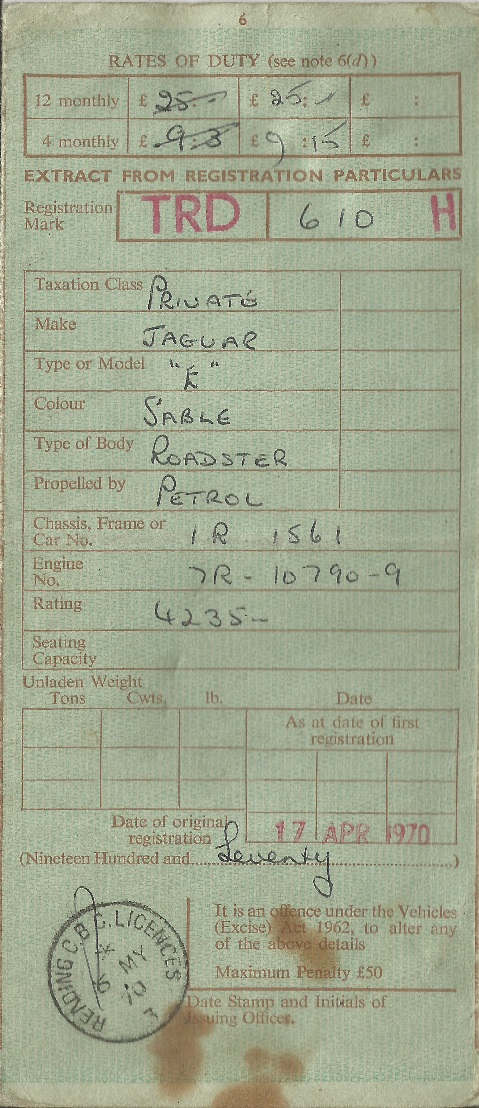 6
RATES OF DUTY (see note 6(d))
12 monthly £ 25 : - £ 25 : - £ :
4 monthly £ 9.3 £ 9 : 15 £ :
EXTRACT FROM REGISTRATION PARTICULARS
Registration Mark TRD 610 H
Taxation Class PRIVATE
Make JAGUAR
Type or Model "E"
Colour SABLE
Type of Body ROADSTER
Propelled by PETROL
Chassis, Frame or Car No. 1R 1561
Engine No. 7R - 10790 - 9
Rating 4235 -
Seating Capacity
Unladen Weight
Tons Cwts. lb. Date
As at date of first registration
Date of original registration 17 APR 1970
(Nineteen Hundred and Seventy)
It is an offence under the Vehicles
(Excise) Act 1962, to alter any
of the above details
Maximum Penalty £50
Date Stamp and Initials of
Issuing Officer.
READING C.B.C. LICENCES
MY